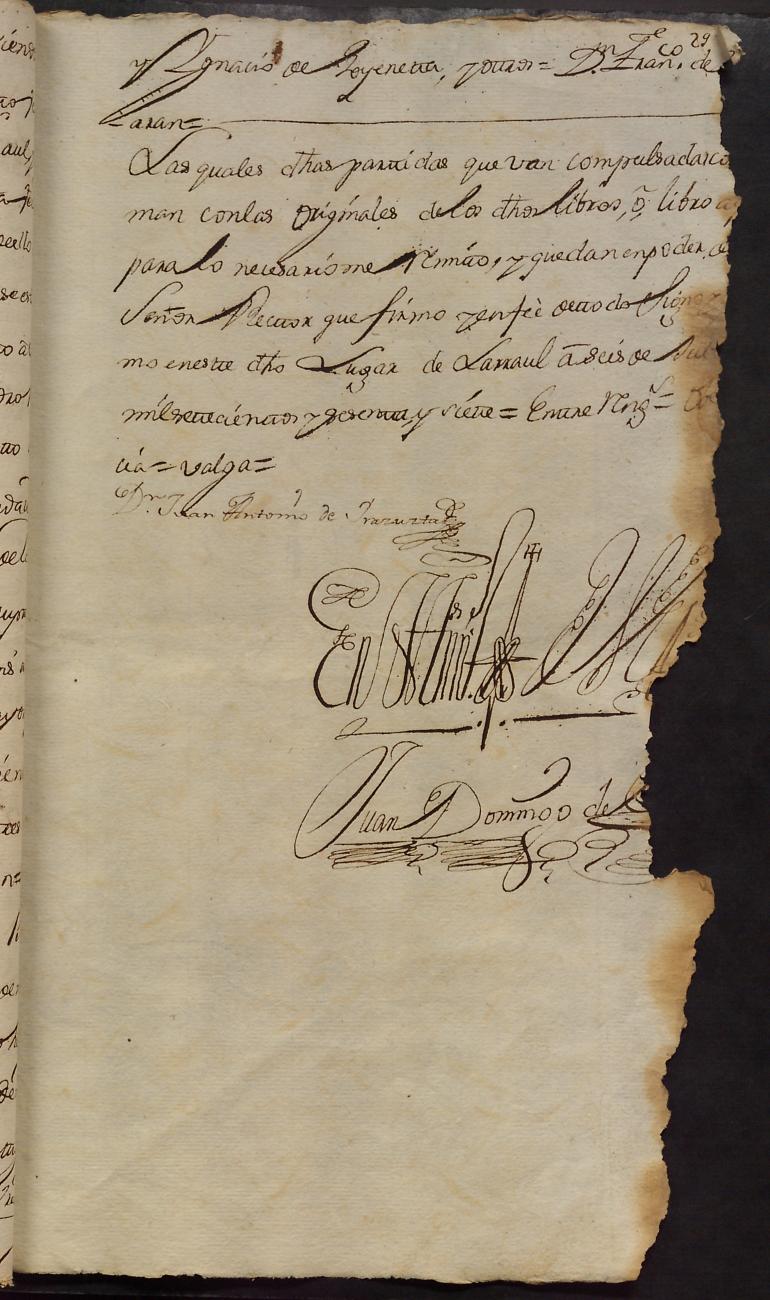 29
y Ygnacio de Goyenetta, y ottros = D.n Fran.co de
Laxan=
Las quales dhas parttidas que van compulsadas co
man con las originales de los dhos libros, õ libro
para lo necesario me Remito, y quedan en poder de
Señor Recttor que firmo y en feè de ttodo Signo y
mo en estte dho Lugar de Larraul â seis de Jul
mil settecienttos y sesentta, y siette = Enttre Reng.s =
cia = valga =
D.n Juan Antonio de Yrazuzta
En Testim.o de Verd
Juan Domingo de